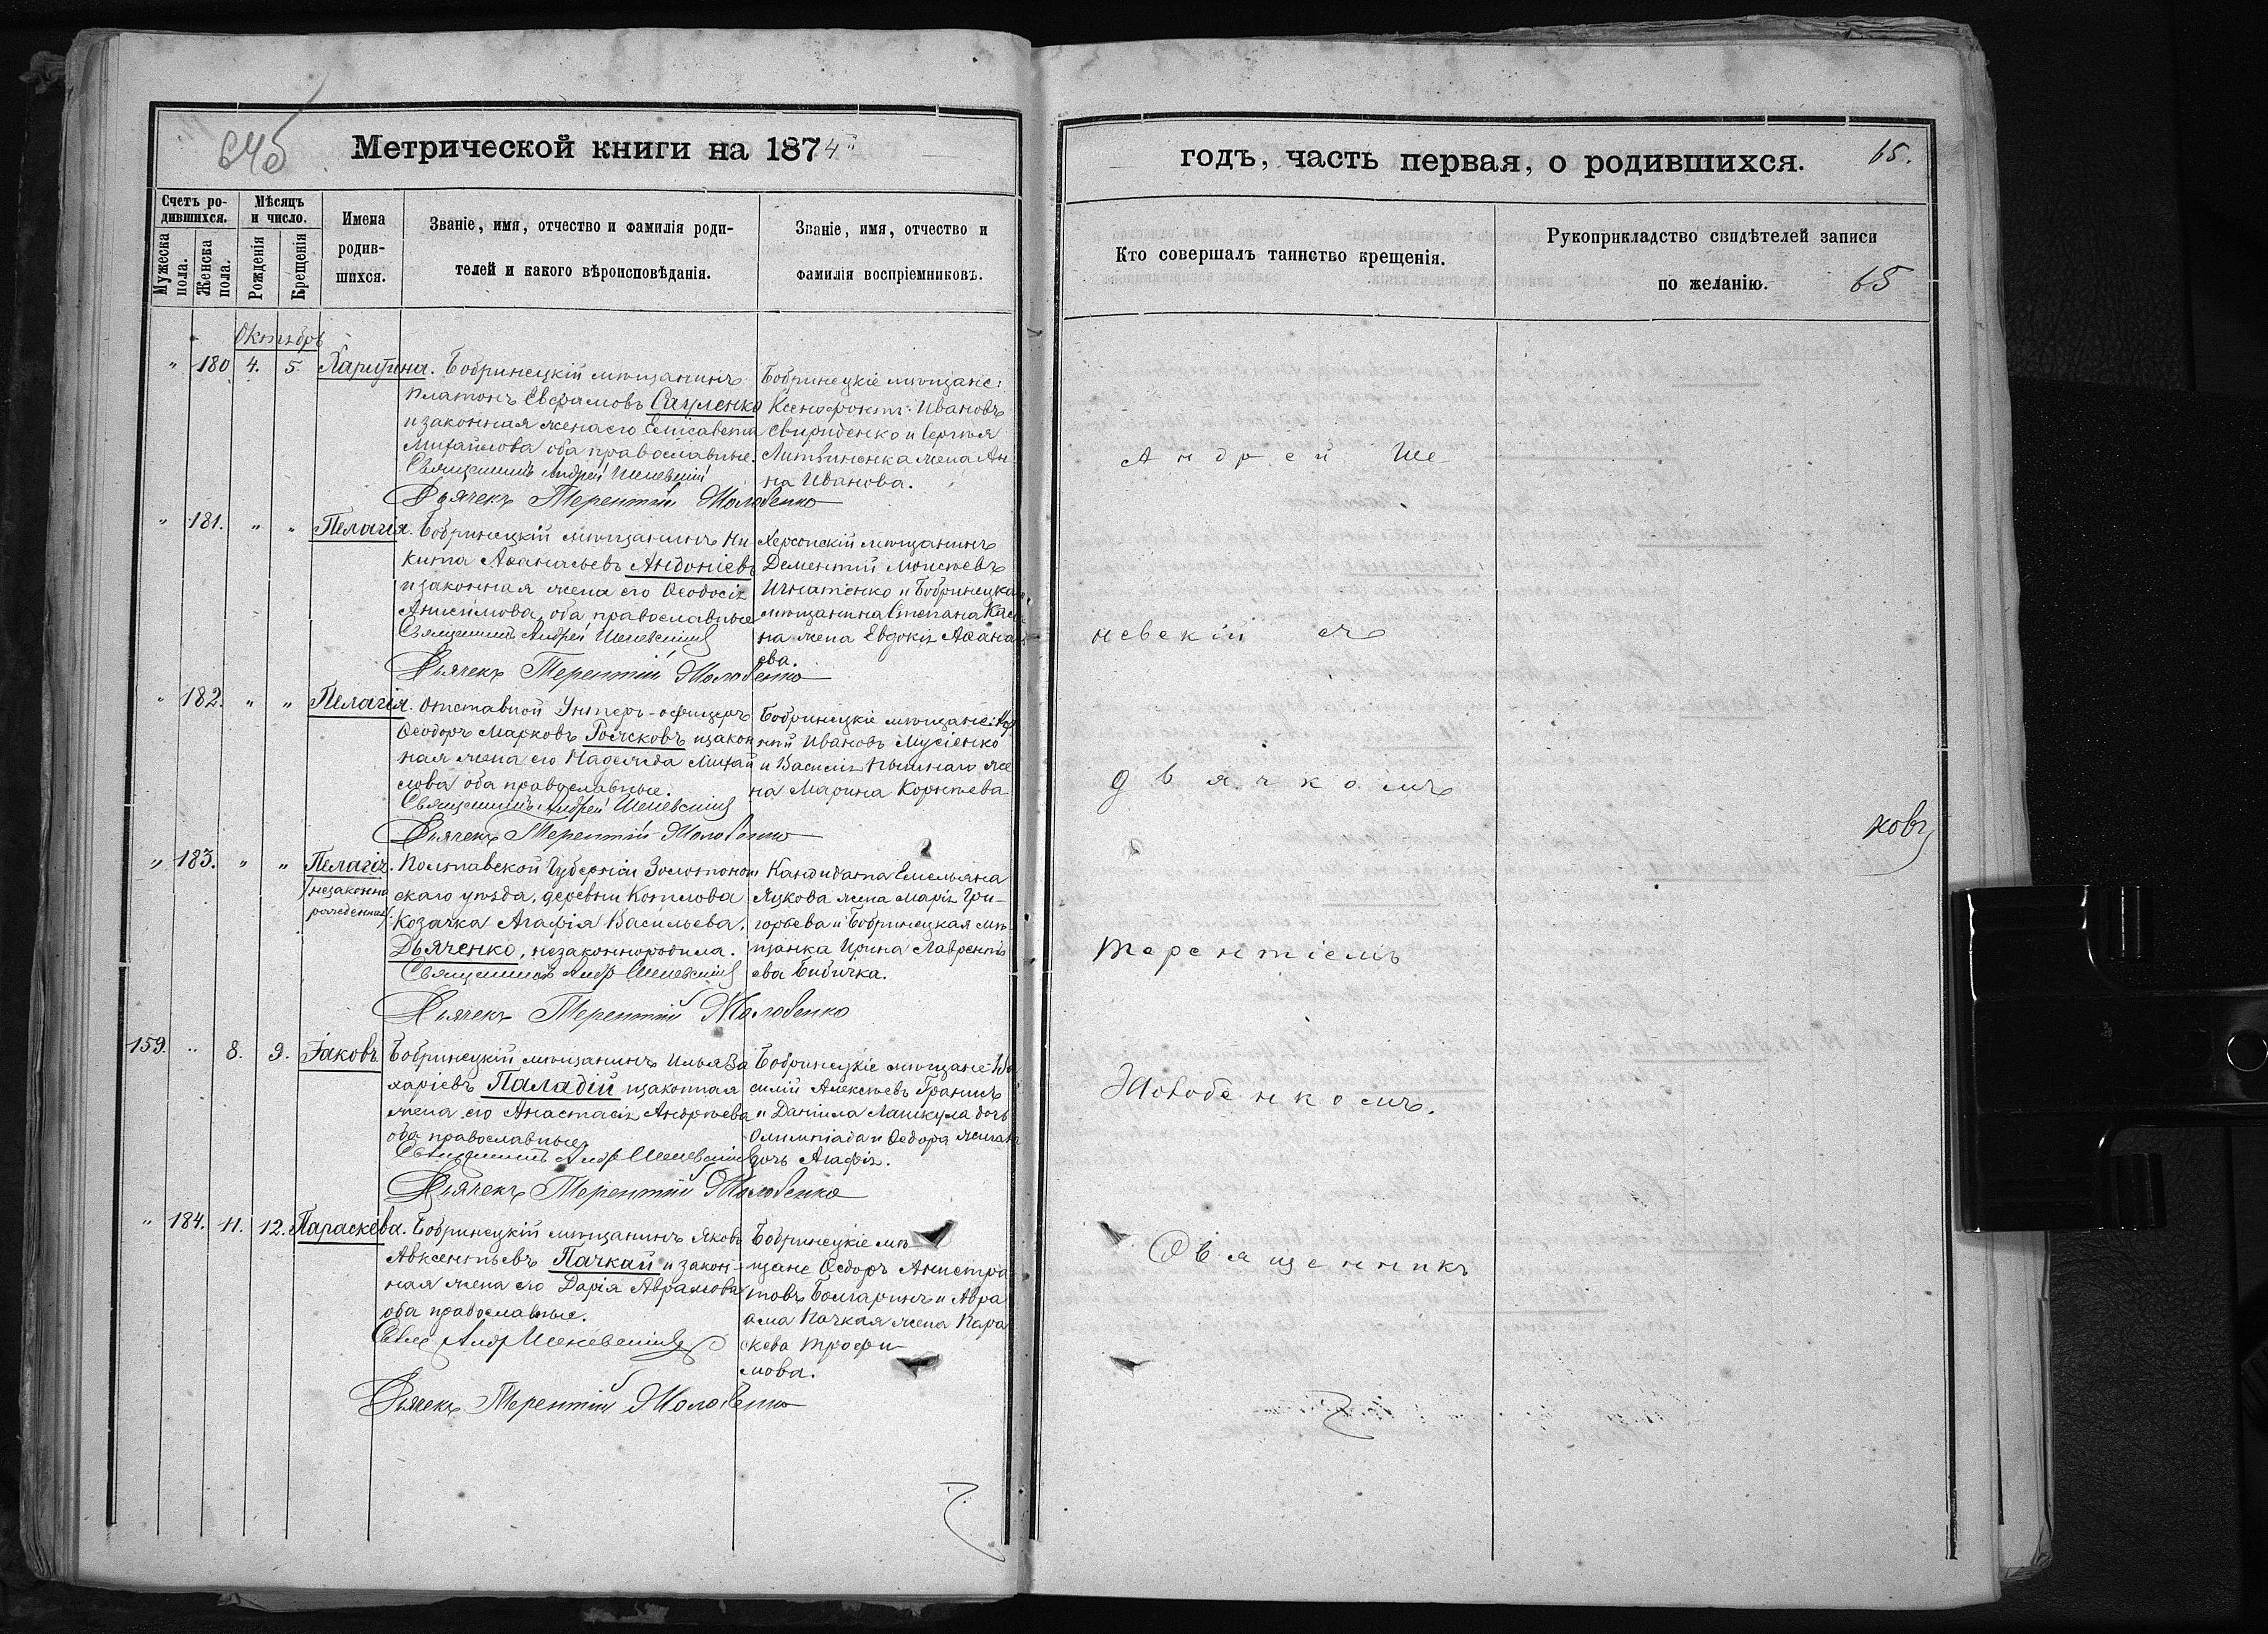 64б
Метрической книги на 1874
Счетъ ро-
дившихся.
Мужеска
пола.
Женска
пола.
Мѣсяцъ
и число.
Рожденія
Крещенія
Имена
родив-
шихся.
Званіе, имя, отчество и фамилія роди-
телей и какого вѣроисповѣданія.
Званіе, имя, отчество и
фамилія воспріемниковъ.
Октябрь
" 180 4. 5. Харитина.
Бобринецкій мѣщанинъ
Платонъ Ефрамовъ Сауленко
и законная жена его Елисавета
Михайлова оба православные.
Священникъ Андрей Шеневскій
Дьячекъ Терентій Жолобенко
Бобринецкіе мѣщане:
Ксенофонтъ Ивановъ
Свириденко и Сергѣя
Литвиненка жена Ан
на Иванова.
" 181. " " Пелагія.
Бобринецкій мѣщанинъ Ни
кита Аѳанасьевъ Андоніевъ
и законная жена его Ѳеодосія
Анисимова, оба православные
Священникъ Андрей Шеневскій
Дьячекъ Терентій Жолобенко
Херсонскій мѣщанинъ
Дементій Моисеевъ
Игнатенко и Бобринецкаго
мѣщанина Степана
на жена Евдокія Аѳанась
ева.
" 182. " " Пелагія.
Отставной Унтеръ-офицеръ
Ѳеодоръ Марковъ Рожсковъ и закон
ная жена его Надежда Михай
лова оба православные.
Священникъ Андрей Шеневскій
Дьячекъ Терентій Жолобенко
Бобринецкіе мѣщане:
ній Ивановъ Мусіенко
и Василія Пышнаго же
на Марина Корнѣева
" 183. " " Пелагія.
незаконно
рожденная
Полтавской Губерніи Золотоном
скаго уѣзда, деревни Коптлова
Козачка Агафія Васильева,
Дьяченко, незаконнородила.
Священникъ Андр Шеневскій
Дьячекъ Терентій Жолобенко
Кандидата Емельяна
Яцкова жена Марія Гри-
горьева и Бобринецкая мѣ
щанка Ирина Лаврентьѣ
ева Бибичка.
159. " 8. 9. Іаковъ.
Бобринецкій мѣщанинъ Илья За
харіевъ Паладій и законная
жена его Анастасія Андреева
оба православные.
Священникъ Андр Шеневскій
Дьячекъ Терентій Жолобенко
Бобринецкіе мѣщане Ва
силій Алексѣевъ
и Даніила Лашкула дочь
Олимпіада и Ѳедора
дочь Агафія.
" 184. 11. 12. Параскева.
Бобринецкій мѣщанинъ Яковъ
Авксентьевъ Пачкай и закон-
ная жена его Дарія Аврамова
оба православные.
Свящ Андр Шеневскій
Дьячекъ Терентій Жолобенко
Бобринецкіе мѣ-
щане Ѳедоръ Анистра
товъ Болгаринъ и Авра
ама Пачкая жена Пара
скева Трофи-
мова.
годъ, часть первая, о родившихся.
65.
Кто совершалъ таинство крещенія.
Рукоприкладство свидѣтелей записи
по желанію.
65
Андрей Ше
невскій съ
дьячкомъ
ковъ
Терентіемъ
Жолобенкомъ.
Священникъ